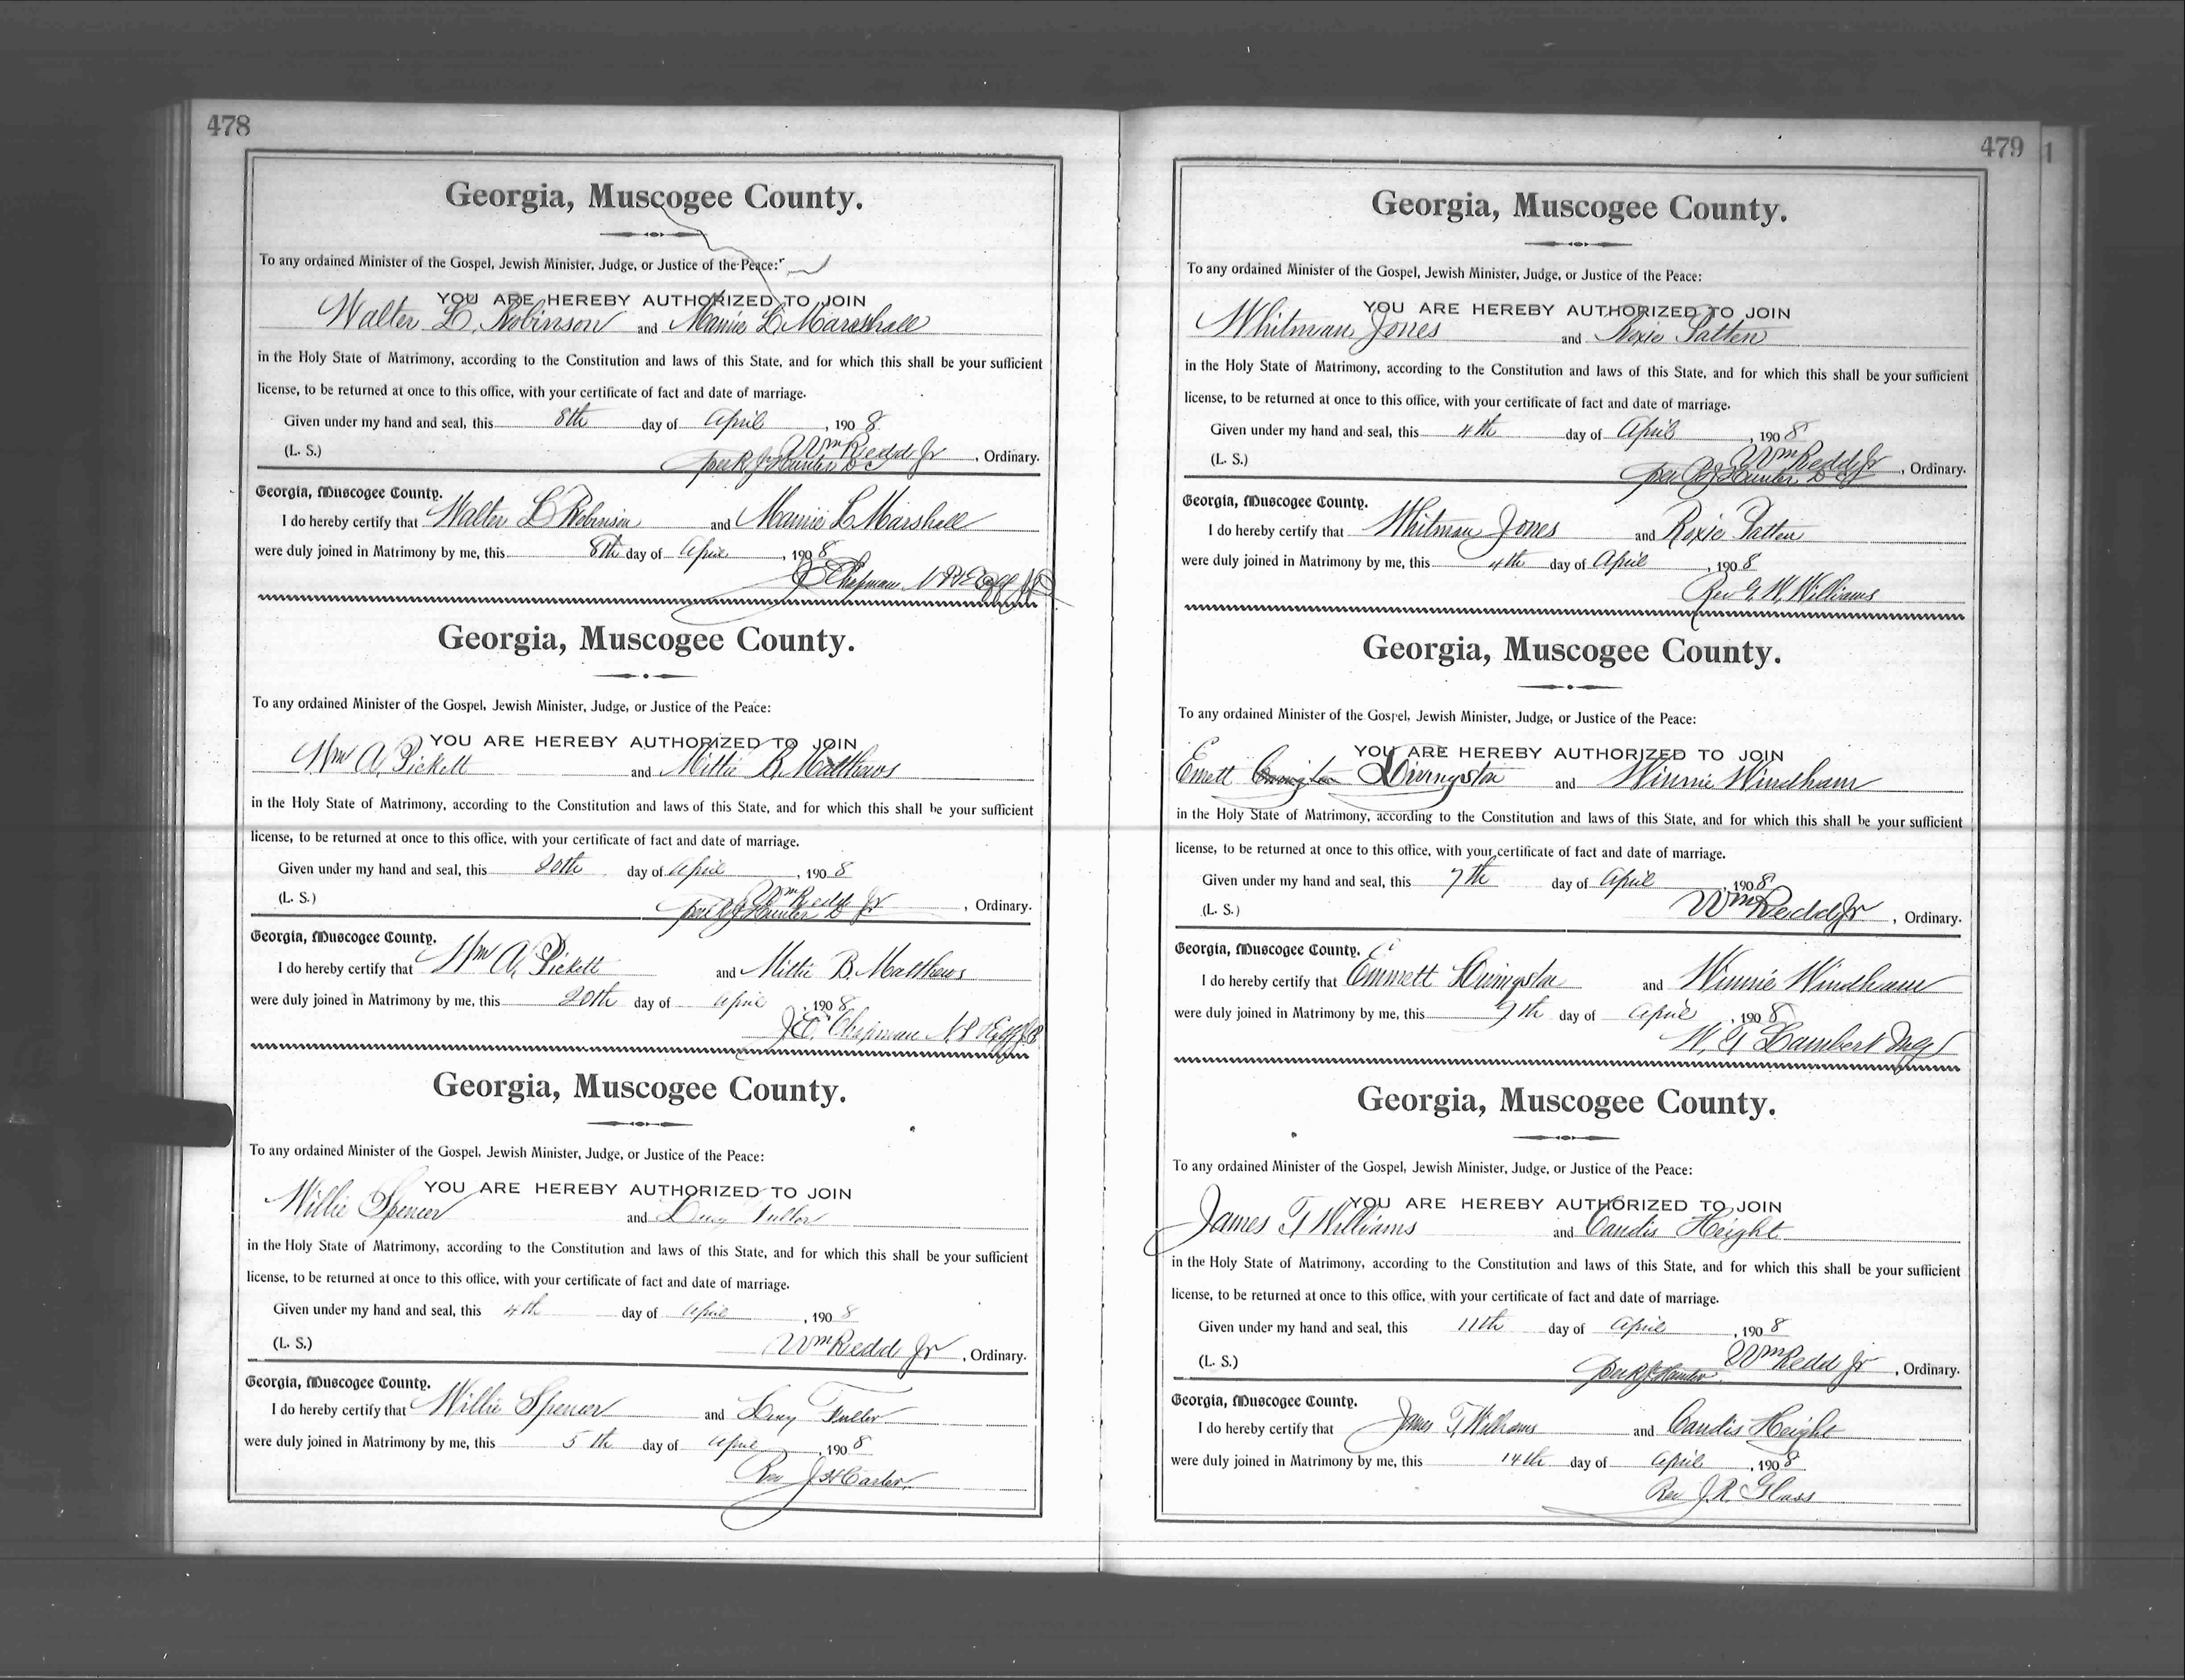 478
Georgia, Muscogee County.
To any ordained Minister of the Gospel, Jewish Minister, Judge, or Justice of the Peace:
YOU ARE HEREBY AUTHORIZED TO JOIN
Walter L. Robinson and Mamie L. Marshall
in the Holy State of Matrimony, according to the Constitution and laws of this State, and for which this shall be your sufficient
license, to be returned at once to this office, with your certificate of fact and date of marriage.
Given under my hand and seal, this 8th day of April, 1908
(L. S.) Wm Redd Jr, Ordinary.
per R J Hunter D C
Georgia, Muscogee County.
I do hereby certify that Walter L Robinson and Mamie L Marshall
were duly joined in Matrimony by me, this 8th day of April, 1908
Chapman N P
Georgia, Muscogee County.
To any ordained Minister of the Gospel, Jewish Minister, Judge, or Justice of the Peace:
YOU ARE HEREBY AUTHORIZED TO JOIN
Wm A. Pickett and Mittie B. Matthews
in the Holy State of Matrimony, according to the Constitution and laws of this State, and for which this shall be your sufficient
license, to be returned at once to this office, with your certificate of fact and date of marriage.
Given under my hand and seal, this 20th day of April, 1908
(L. S.) Wm Redd Jr, Ordinary.
per R J Hunter D
Georgia, Muscogee County.
I do hereby certify that Wm A. Pickett and Mittie B. Matthews
were duly joined in Matrimony by me, this 20th day of April, 1908
J. E. Chapman N. P.
Georgia, Muscogee County.
To any ordained Minister of the Gospel, Jewish Minister, Judge, or Justice of the Peace:
YOU ARE HEREBY AUTHORIZED TO JOIN
Willie Spencer and Lucy Fuller
in the Holy State of Matrimony, according to the Constitution and laws of this State, and for which this shall be your sufficient
license, to be returned at once to this office, with your certificate of fact and date of marriage.
Given under my hand and seal, this 4th day of April, 1908
(L. S.) Wm Redd Jr, Ordinary.
Georgia, Muscogee County.
I do hereby certify that Willie Spencer and Lucy Fuller
were duly joined in Matrimony by me, this 5th day of April, 1908
Rev J H Carter
479
Georgia, Muscogee County.
To any ordained Minister of the Gospel, Jewish Minister, Judge, or Justice of the Peace:
YOU ARE HEREBY AUTHORIZED TO JOIN
Whitman Jones and Roxie Patten
in the Holy State of Matrimony, according to the Constitution and laws of this State, and for which this shall be your sufficient
license, to be returned at once to this office, with your certificate of fact and date of marriage.
Given under my hand and seal, this 4th day of April, 1908
(L. S.) Wm Redd Jr, Ordinary.
per R J Hunter D Cy
Georgia, Muscogee County.
I do hereby certify that Whitman Jones and Roxie Patten
were duly joined in Matrimony by me, this 4th day of April, 1908
Rev G. W. Williams
Georgia, Muscogee County.
To any ordained Minister of the Gospel, Jewish Minister, Judge, or Justice of the Peace:
YOU ARE HEREBY AUTHORIZED TO JOIN
Emett Livingston and Winnie Windham
in the Holy State of Matrimony, according to the Constitution and laws of this State, and for which this shall be your sufficient
license, to be returned at once to this office, with your certificate of fact and date of marriage.
Given under my hand and seal, this 7th day of April, 1908
(L. S.) Wm Redd Jr, Ordinary.
Georgia, Muscogee County.
I do hereby certify that Emmett Livingston and Winnie Windham
were duly joined in Matrimony by me, this 9th day of April, 1908
W. G Lambert
Georgia, Muscogee County.
To any ordained Minister of the Gospel, Jewish Minister, Judge, or Justice of the Peace:
YOU ARE HEREBY AUTHORIZED TO JOIN
James T Williams and Candis Height
in the Holy State of Matrimony, according to the Constitution and laws of this State, and for which this shall be your sufficient
license, to be returned at once to this office, with your certificate of fact and date of marriage.
Given under my hand and seal, this 11th day of April, 1908
(L. S.) Wm Redd Jr, Ordinary.
per R J Hunter
Georgia, Muscogee County.
I do hereby certify that James T Williams and Candis Height
were duly joined in Matrimony by me, this 14th day of April, 1908
Rev J. R. Glass